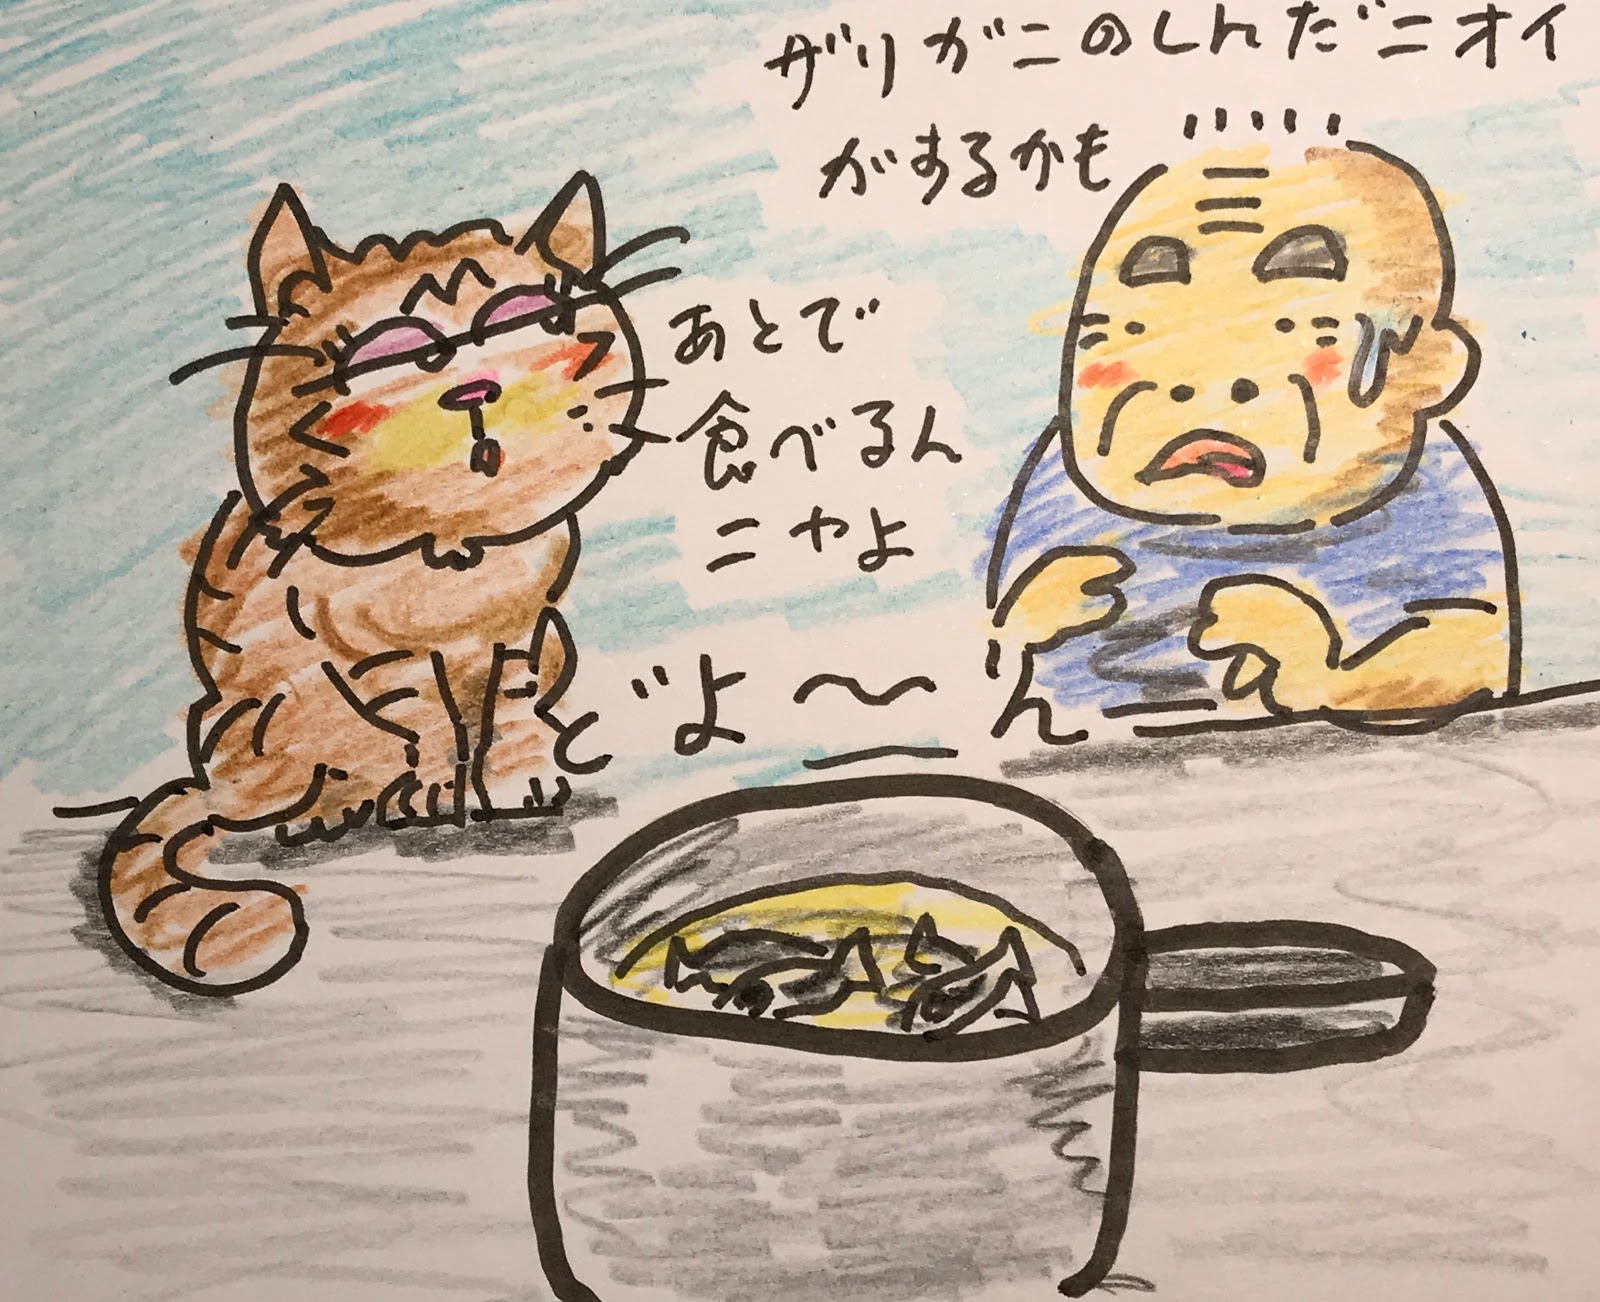 ザリガニのしんだニオイ
がするかも
あとで
食べるん
ニャよ
どよ〜ん